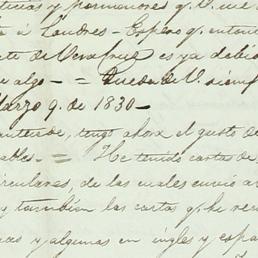 ticias y pormenores q. V. me
a Londres - Espero q. entonc
te de Veracruz es ya debid
e algo - = Queda de V. siem
Marzo 9. de 1830 -
antecede, tengo ahora el gusto de
able - = He tenido cartas de
irculares, de las cuales envio a
y tambien las cartas q. he rec
icas y algunas en ingles y espa